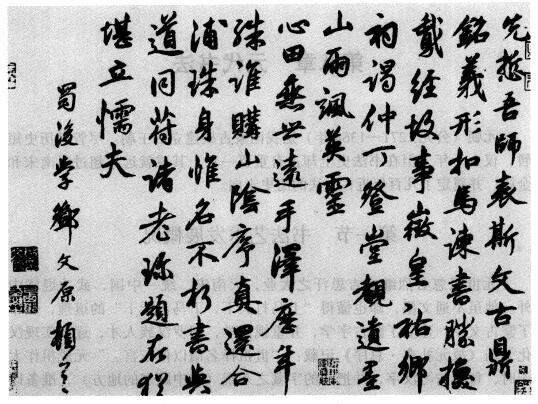 先悊吾師表斯文古鼎
銘義形扣馬諫書勝換
鵞經故事徵皇祐鄉
祠謁仲丁登堂觀道墨
山雨颯英靈
心田無世遠手澤歷年
殊誰購山陰序真還合
浦珠身惟名不朽書與
道同符諸老珎題在猶
堪立懦夫
蜀後學鄧文原頓首